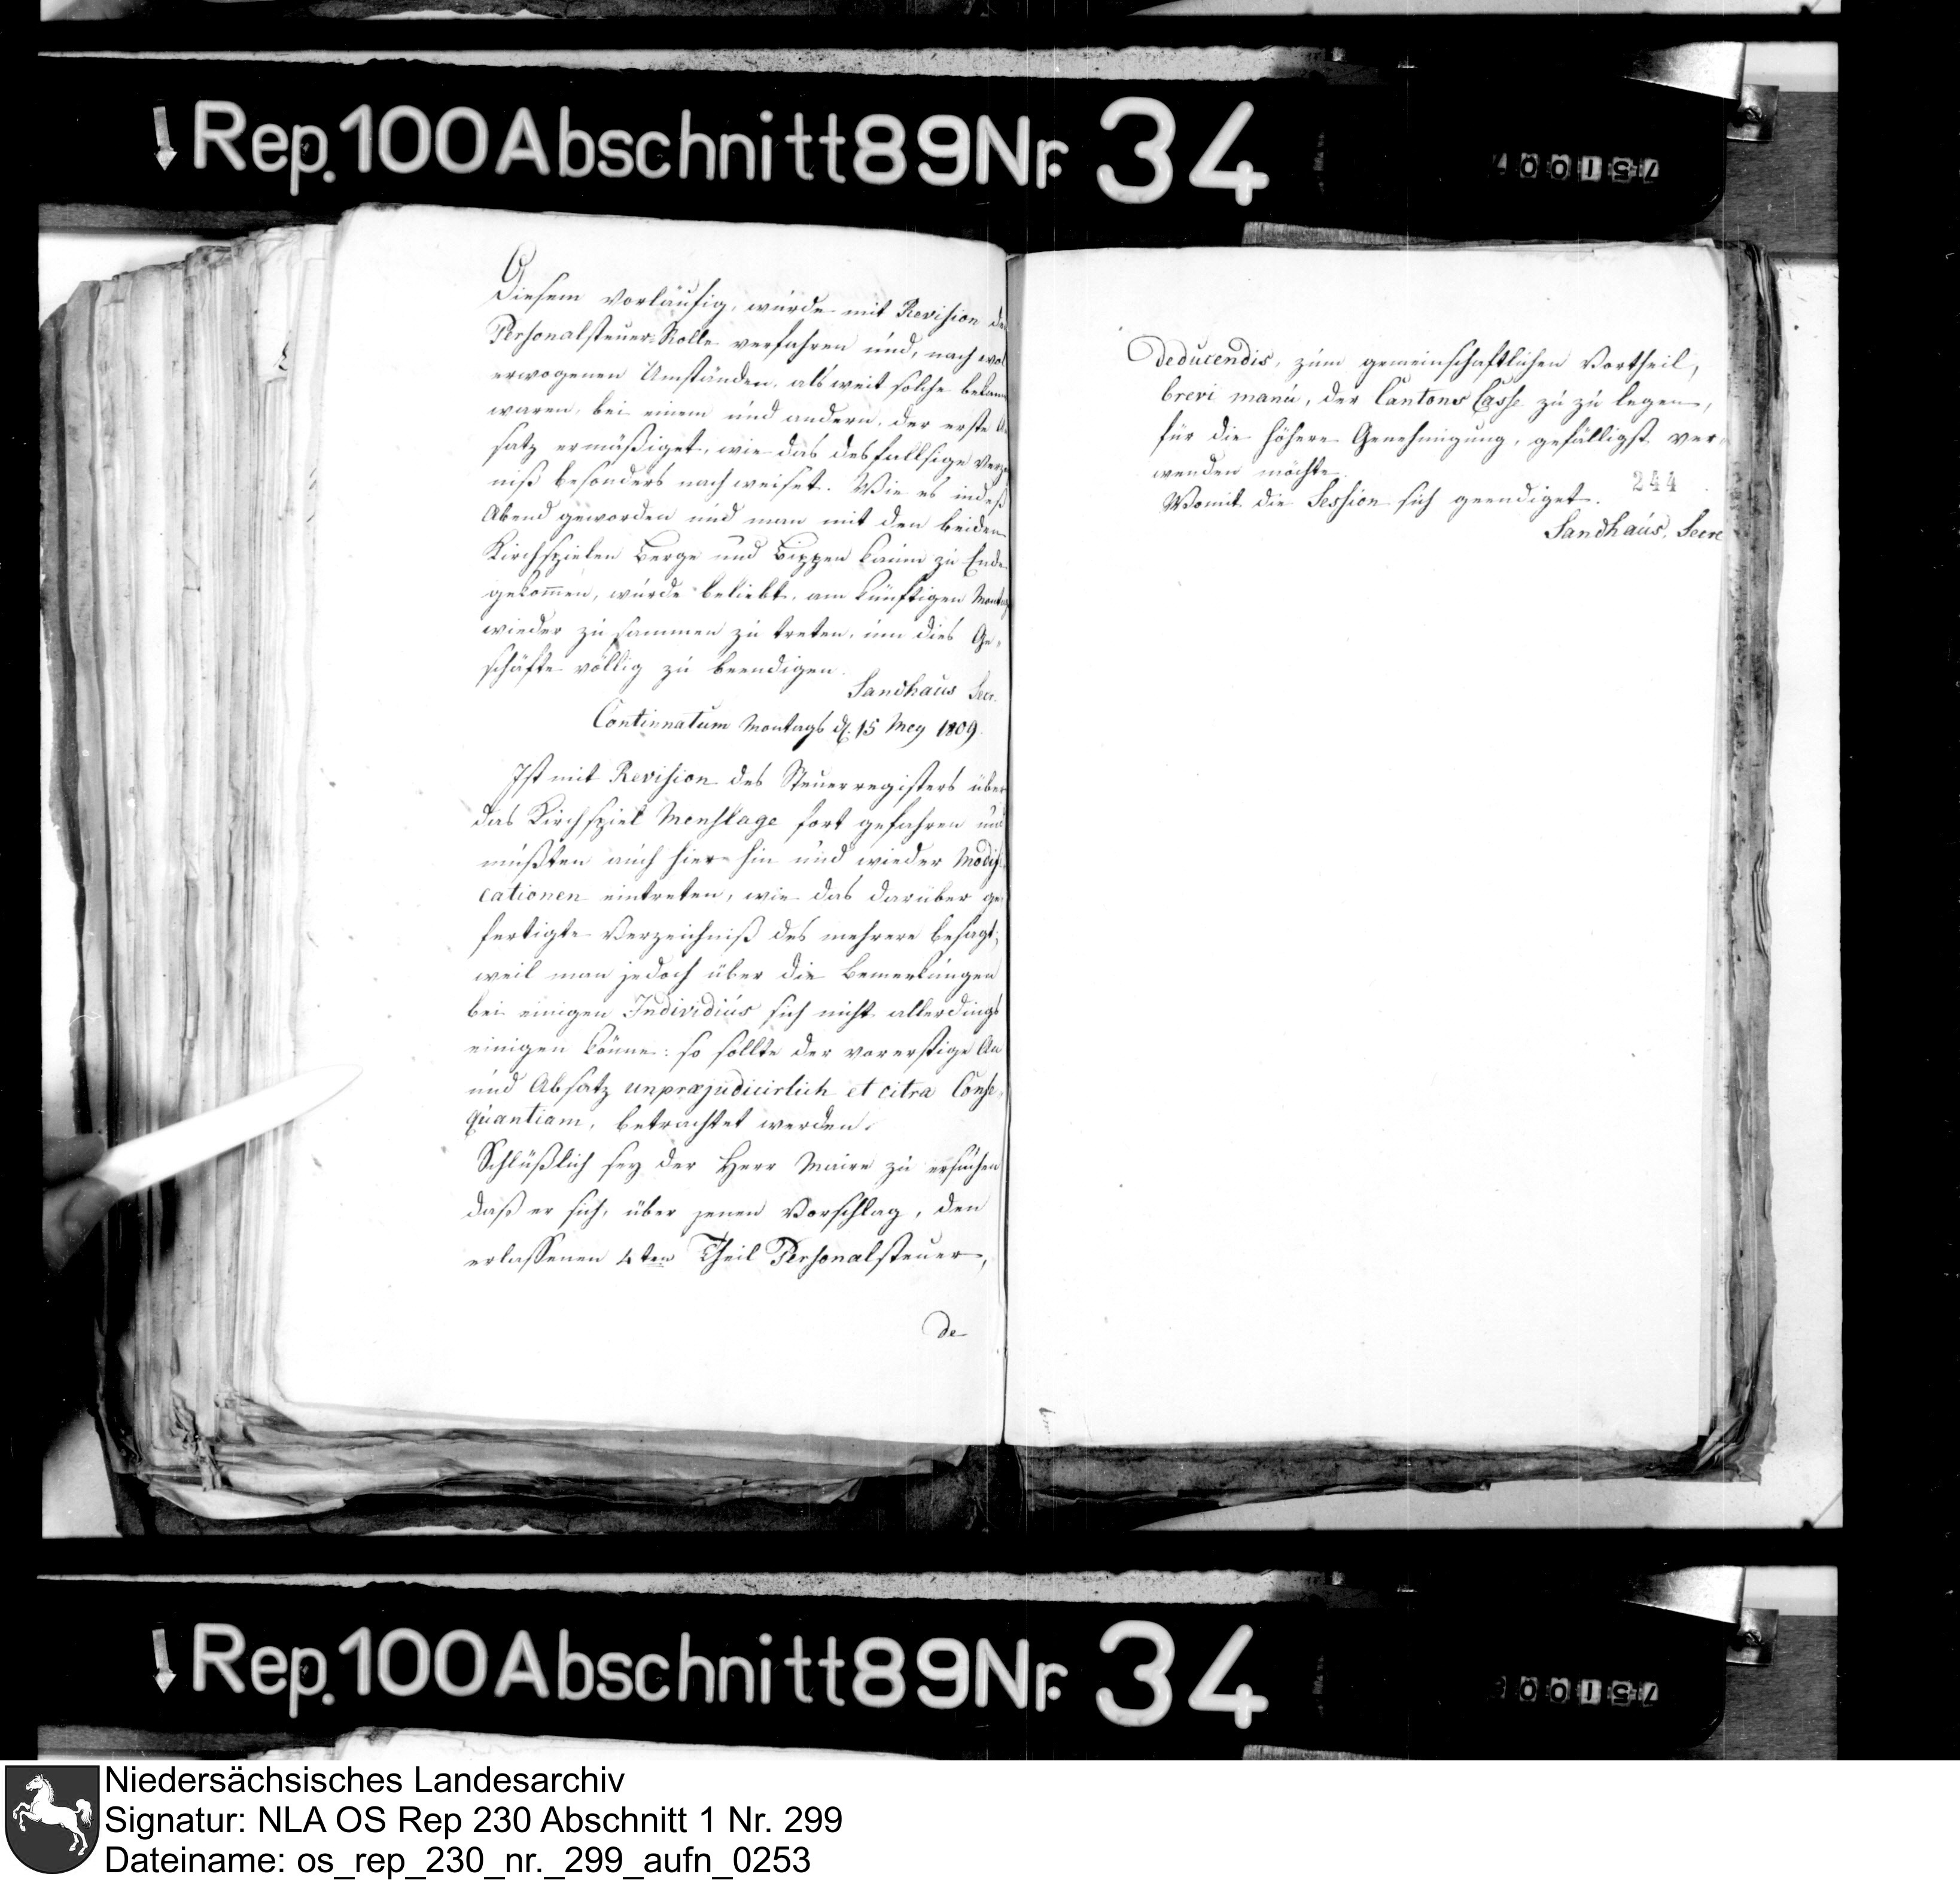 Rep. 100 Abschnitt 89 Nr. 34
Diesem vorläufig, wurde mit Revision der
Personalsteuer-Rolle verfahren und, nach wol
erwogenen Umständen, als weit solche bekannt
waren, bei einem und andern, der erste An
satz ermäßiget, wie das desfallsige Verzeich
niß besonders nachweiset. Wie es indeß
Abend geworden und man mit den beiden
Kirchspielen Berge und Bippen kaum zu Ende
gekom̄en, wurde beliebt, am künftigen Montag
wieder zusammen zu treten, um dies Ge-
schäfte völlig zu beendigen.
Sandhaus Secr.
Continuatum Montags d. 15 Mey 1809.
Ist mit Revision des Steuerregisters über
das Kirchspiel Menslage fort gefahren und
mußten auch hier hin und wieder Modifi-
cationen eintreten, wie das darüber ge-
fertigte Verzeichniß des mehrere besagt;
weil man jedoch über die Bemerkungen
bei einigen Individius sich nicht allerdings
einigen könne: so sollte der vorerstige An
und Absatz unpræjudicirlich et citra Conse-
quantiam, betrachtet werden.
Schlüßlich sey der Herr Maire zu ersuchen
daß er sich, über jenen Vorschlag, den
erlassenen 4ten Theil Personalsteuer,
de
deducendis, zum gemeinschaftlichen Vortheil,
brevi manu, der Cantons Casse zu zu legen,
für die höhere Genehmigung, gefälligst ver-
wenden möchte.
244
Womit die Session sich geendiget.
Sandhaus, Secre
Rep. 100 Abschnitt 89 Nr. 34
Niedersächsisches Landesarchiv
Signatur: NLA OS Rep 230 Abschnitt 1 Nr. 299
Dateiname: os_rep_230_nr._299_aufn_0253